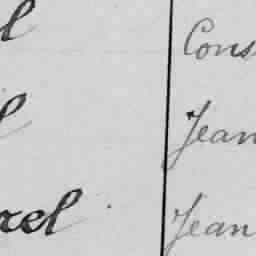 l Cons
l Jean
rel Jean